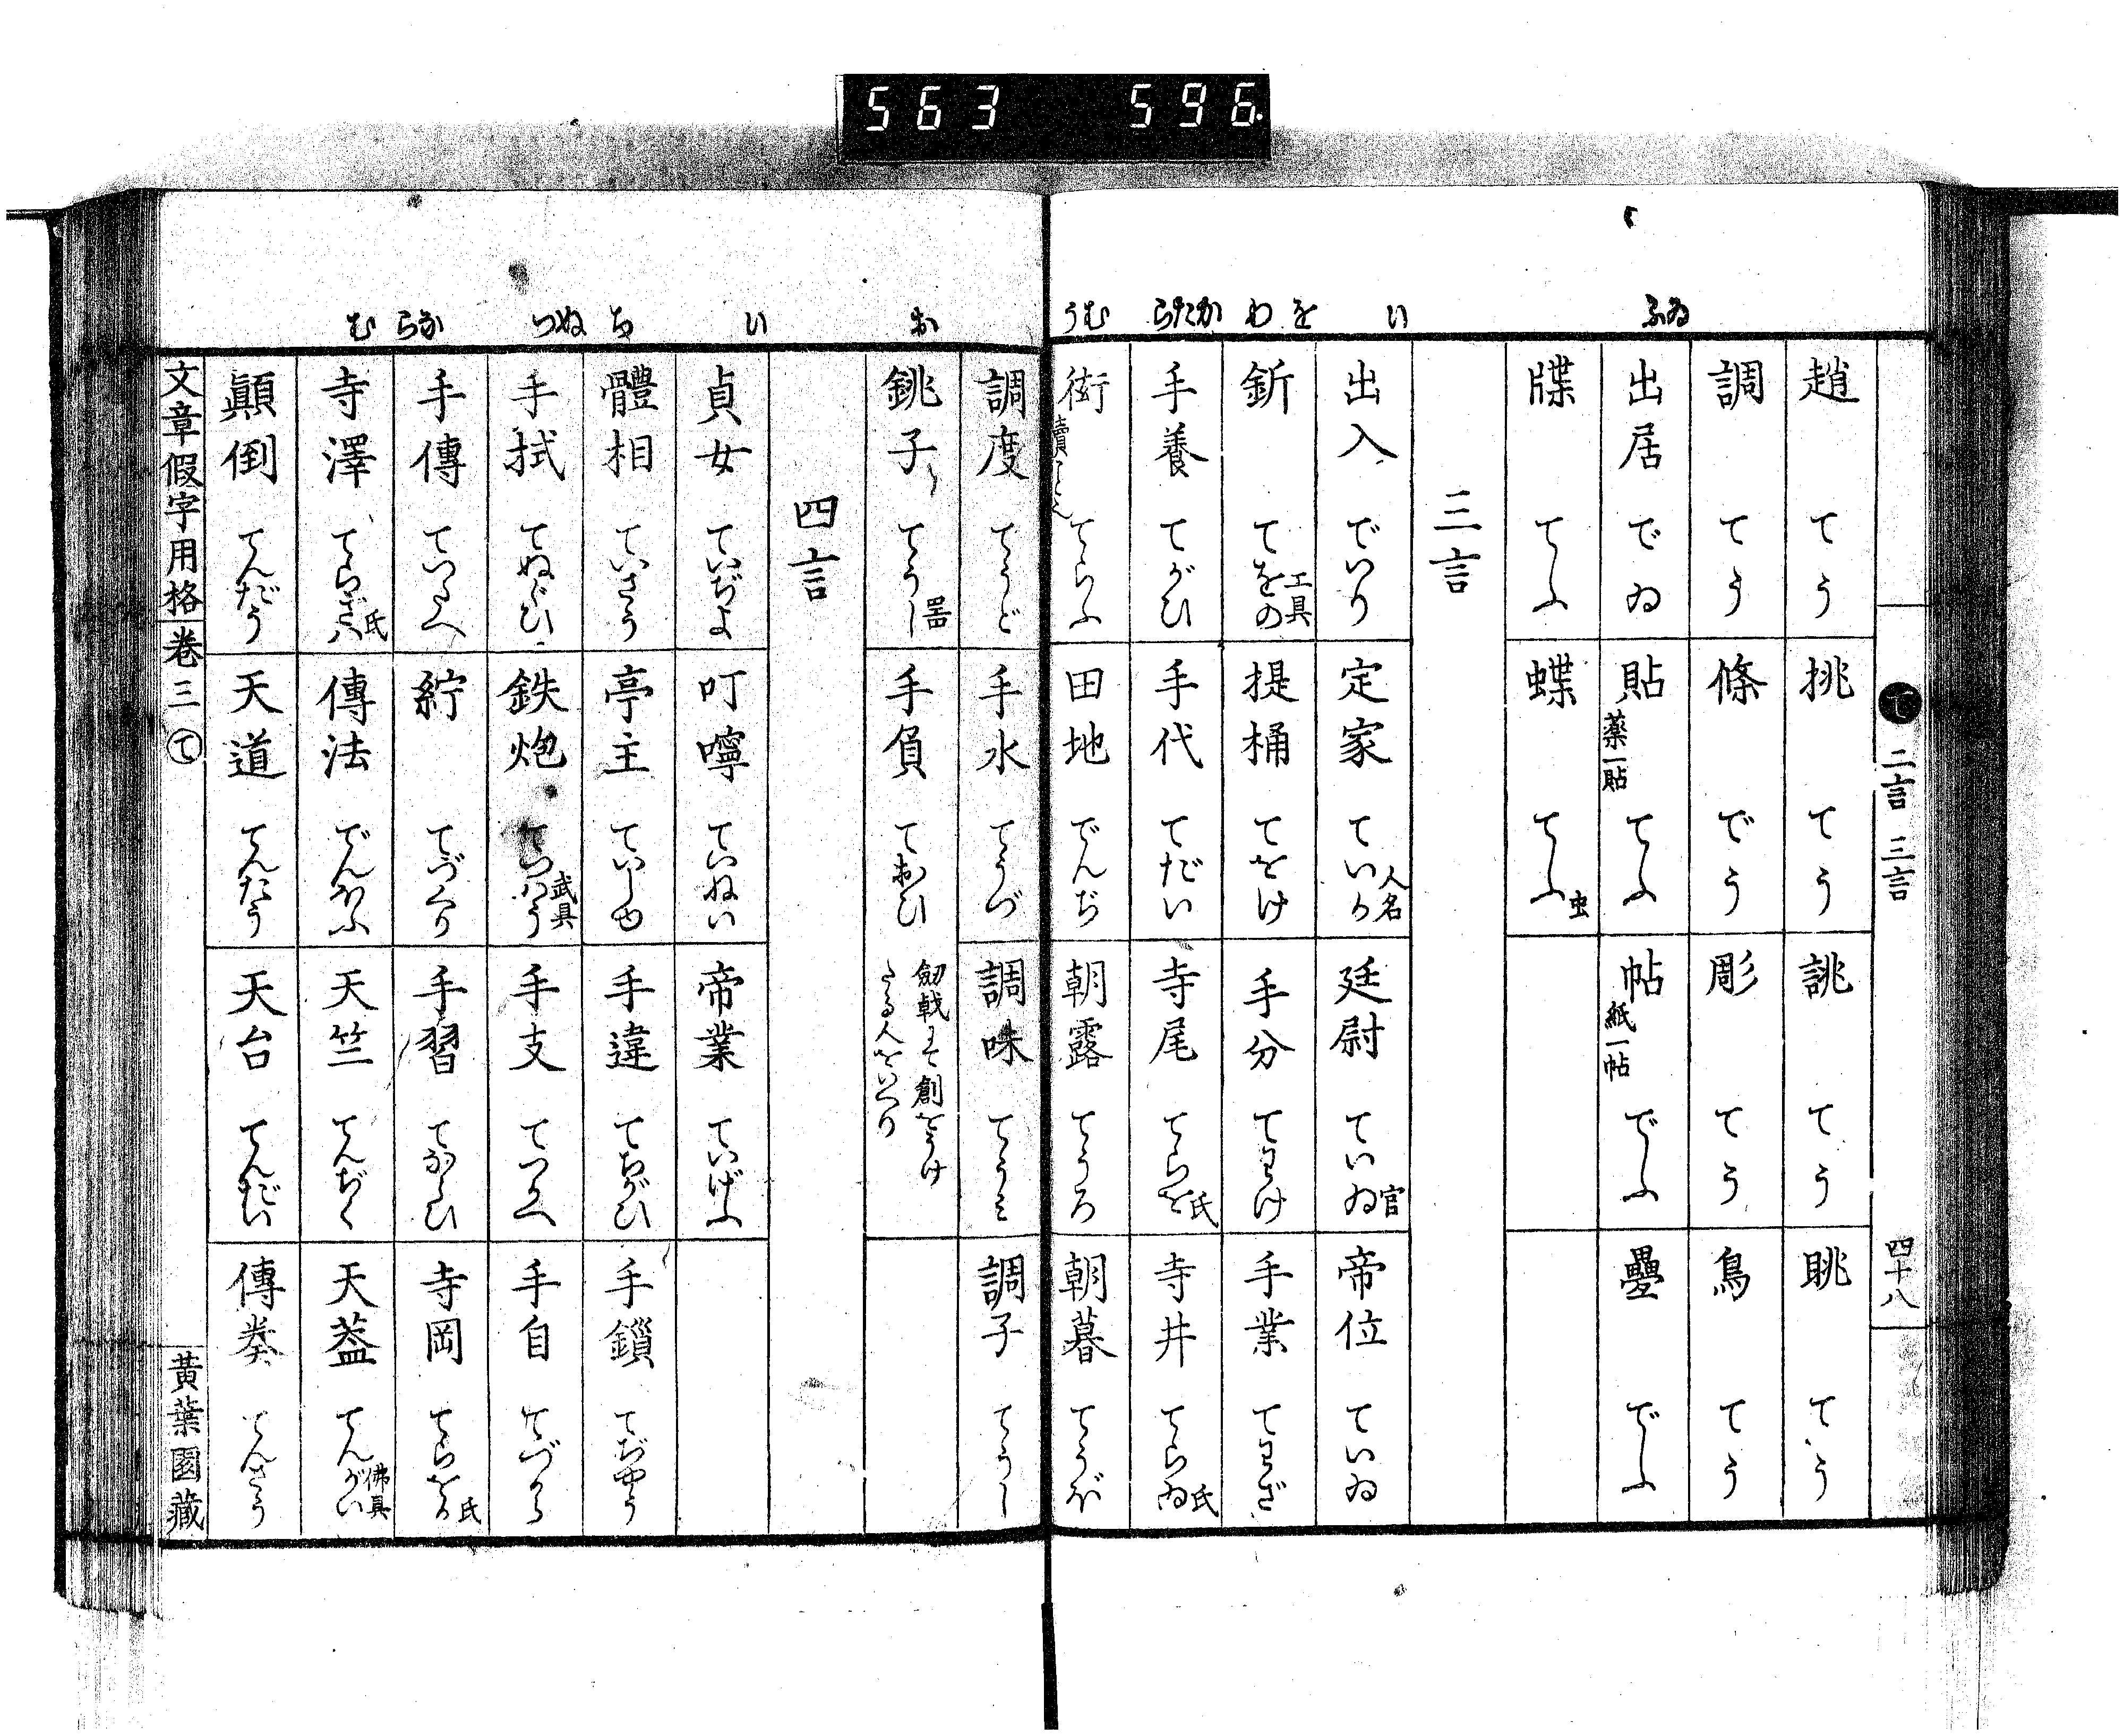 563 596
ゐふ
い
を
わ
かたら
むう
て 二言 三言
四十八
趙 てう 挑 てう 誂 てう 眺 てう
調 てう 條 でう 彫 てう 鳥 てう
出居 でゐ 貼 薬一貼 てふ 帖 紙一帖 でふ 疊 でふ
牒 てふ 蝶 てふ 虫
三言
出入 でいり 定家 ていか 人名 廷尉 ていゐ 官 帝位 ていゐ
釿 てをの 工具 提桶 てをけ 手分 てわけ 手業 てわざ
手養 てがひ 手代 てだい 寺尾 てらを 氏 寺井 てらゐ 氏
衒 てらふ 田地 でんぢ 朝露 てうろ 朝暮 てうぼ
お
い
ち
ぬつ
ならむ
調度 てうど 手水 てうづ 調味 てうみ 調子 てうし
銚子 てうし 器 手負 ておひ 劔戟にて創をうけたる人をいへり
四言
貞女 ていぢよ 叮嚀 ていねい 帝業 ていげふ
體相 ていさう 亭主 ていしゆ 手違 てちがひ 手鎖 てぢやう
手拭 てぬぐひ 鉄炮 てつはう 武具 手支 てつかへ 手自 てづから
手傳 てつたへ 紵 てづくり 手習 てならひ 寺岡 てらをか 氏
寺澤 てらざは 氏 傳法 でんぱふ 天竺 てんぢく 天蓋 てんがい 佛具
顚倒 てんだう 天道 てんたう 天台 てんだい 傳奏 てんさう
文章假字用格 卷三 て
黃葉園藏